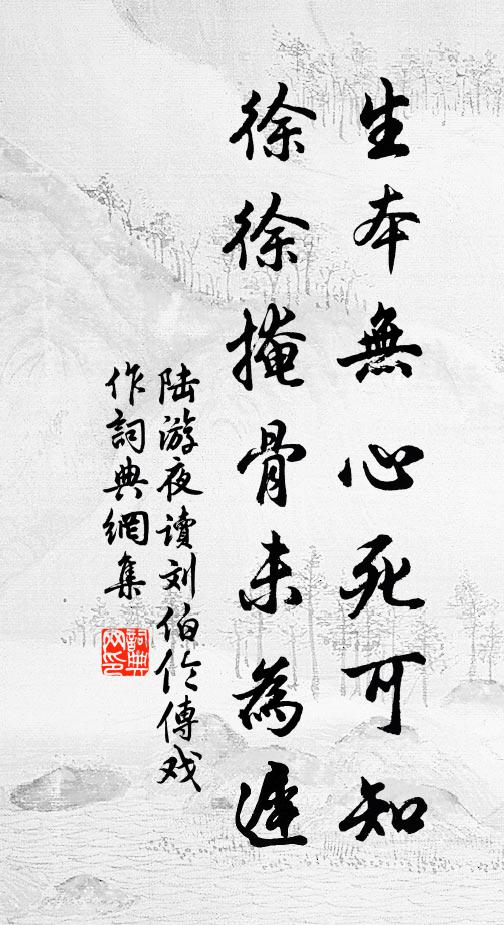 生本無心死可知
徐徐掩骨未為遲
陆游夜读刘伯伦傅戏
作詞典網集
詞典